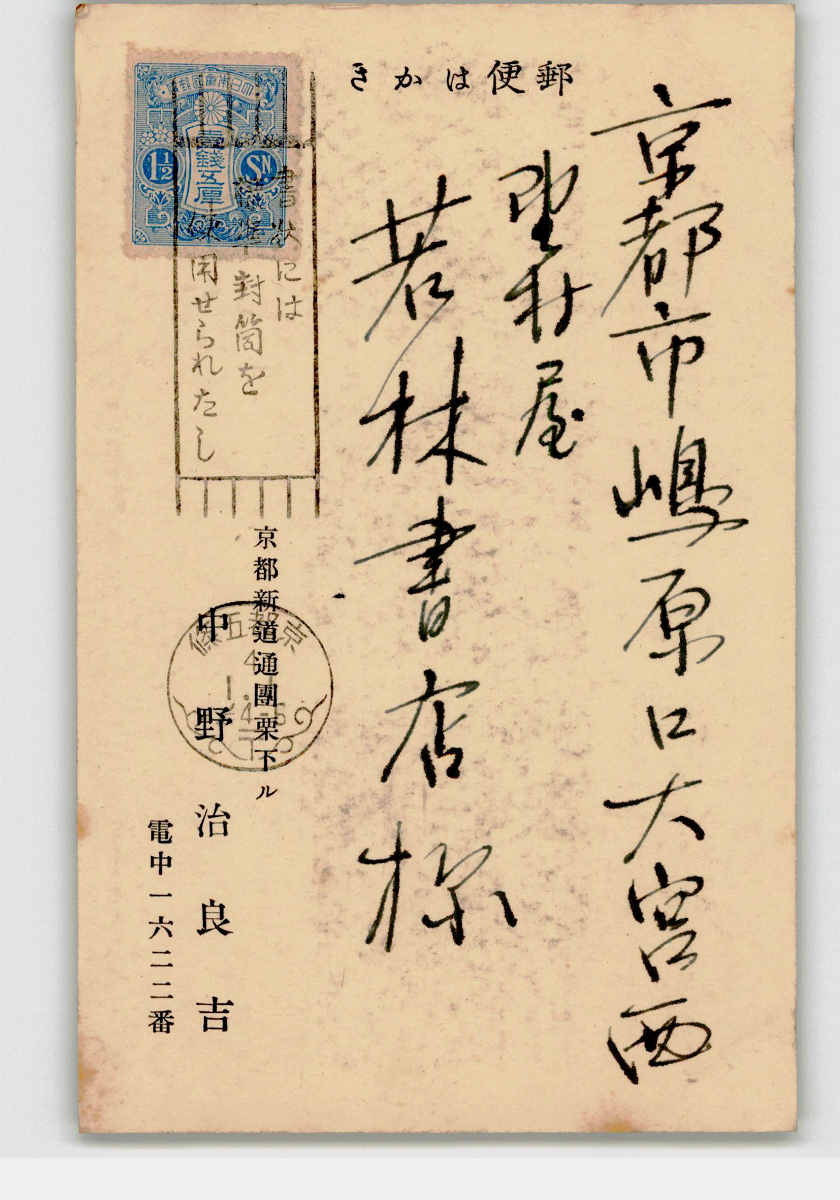 郵便はかき
京都市嶋原口大宮西
村屋
若林書店様
大日本帝國郵便
壹錢五厘
1½
SN
書状には
封筒を
用せられたし
京都五條
4
1.1
4-6
京都新道通團栗下ル
中野治良吉
電中一六二二番